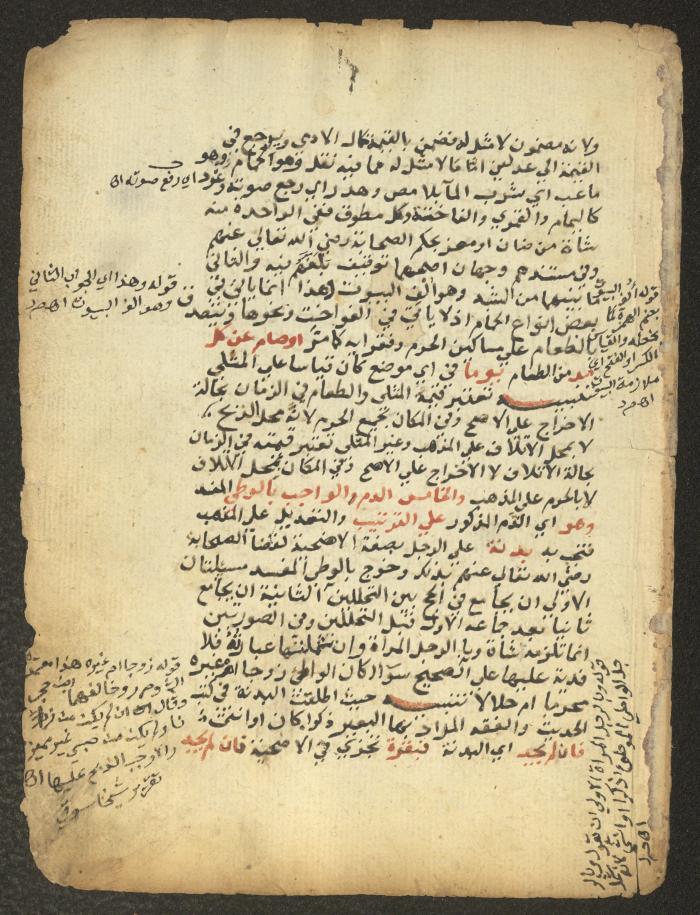 ولانه مضمون لا مثل له فضمن بالقيمة كمال الادمي ويرجع في
القيمة الى عدلين امّا ما لا مثل له مما فيه نقل وهو الحمام وهو
ما عب اي شرب المآ بلا مص وهدر اي رجع صوته وغرد
كاليمام والقمري والفاختة وكل مطوق ففي الواحدة منه
شاة من ضان او معز بحكم الصحابة رضي الله تعالى عنهم
وفي مستندهم وجهان اصحهما توقيف بلغهم فيه والثاني
ما بينهما من الشبه وهو الف البيوت وهذا انما ياتي في
بعض انواع الحمام اذ لا ياتي في الفواخت ونحوها ويتصدق
بالطعام على مساكين الحرم وفقرائه كما مر او صام عن كل
مد من الطعام يوما في اي موضع كان قياسا على المثلي
تنبيه تعتبر قيمة المثلي والطعام في الزمان بحالة
الاخراج على الاصح وفي المكان بجميع الحرم لانه محل الذبح
لا بمحل الاتلاف على المذهب وغير المثلي تعتبر قيمته في الزمان
بحالة الاتلاف لا الاخراج على الاصح وفي المكان بمحل الاتلاف
لا بالحرم على المذهب والخامس الدم والواجب بالوطئ المفسد
وهو اي الدم المذكور على الترتيب والتعديل على المذهب
فتجب به بدنة على الرجل بصفة الاضحية لقضا الصحابة
رضي الله تعالى عنهم بذلك وخرج بالوطئ المفسد مسئلتان
الاولى ان يجامع في الحج بين التحللين الثانية ان يجامع
ثانيا بعد جماعه الاول قبل التحللين وفي الصورتين
انما تلزمه شاة وبالرجل المراة وان شملتها عبارته فلا
فدية عليها على الصحيح سوآ كان الواطئ زوجا ام غيره
محرما ام حلالا تنبيه حيث اطلقت البدنة في كتب
الحديث والفقه المراد بها البعير ذكرا كان او انثى
فان لم يجد اي البدنة فبقرة تجزئ في الاضحية فان لم يجد
اي رفع صوته اه
قوله وهذا اي الجواب الثاني
وهو الف البيوت اه م د
قوله الف البيت
ملازمة البيت
اه م د
قوله زوجا ام غيره هذا معتمد
تقرير شيخنا
قوله وبالرجل المراة الاولى ان يقول وبالواطئ
اه م د